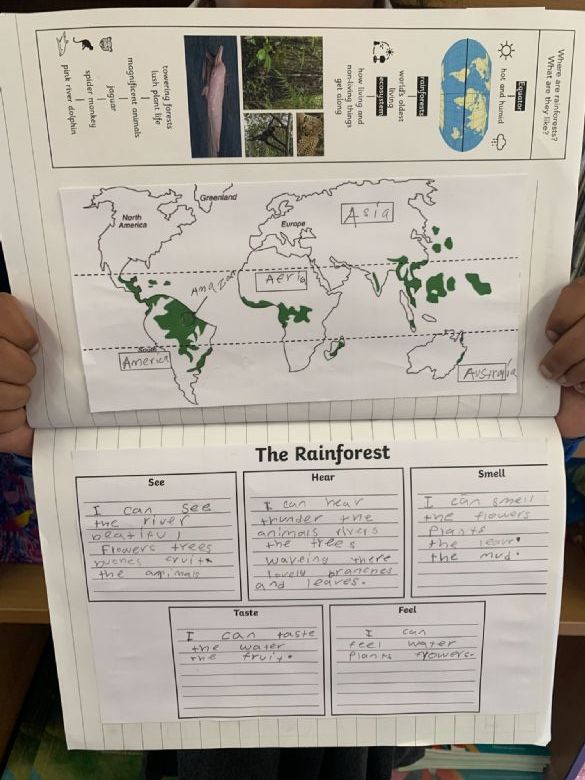 Where are rainforests?
What are they like?
Equator
hot and humid
rainforests
world's oldest
living
ecosystem
how living and
non-living things
get along
towering forests
lush plant life
magnificent animals
jaguar
spider monkey
pink river dolphin
Greenland
North
America
Europe
Asia
Amazon
Aeria
South
America
Australia
The Rainforest
See
I can see
the river
beatiful
Flowers trees
the animals
Hear
I can hear
thunder the
animals rivers
the trees
waveing there
lovely branches
and leaves.
Smell
I can smell
the flowers
Plants
the leave.
the mud.
Taste
I can taste
the water
the fruit.
Feel
I can
feel water
Plants flowers.